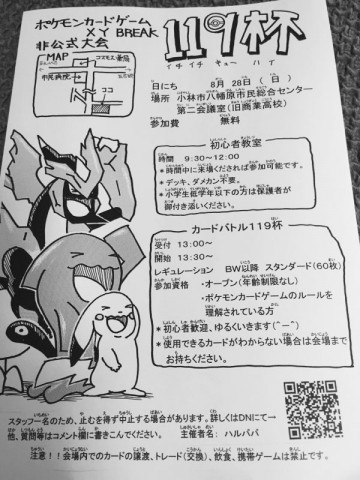 ポケモンカードゲーム
XY BREAK
非公式大会
119杯
イチイチ キュー ハイ
MAP
コスモス薬局
市民病院
ココ
日にち 8月 28日 (日)
場所 小林市八幡原市民総合センター
第二会議室(旧商業高校)
参加費 無料
初心者教室
時間 9:30~12:00
*時間中に来場くだされば参加可能です。
*デッキ、ダメカン不要。
*小学生低学年以下の方は保護者が
御付き添いください。
カードバトル119杯
受付 13:00~
開始 13:30~
レギュレーション BW以降 スタンダード(60枚)
参加資格 ・オープン(年齢制限なし)
・ポケモンカードゲームのルールを
理解されている方
*初心者歓迎、ゆるくいきます(^ー^)
*使用できるカードがわからない場合は会場まで
お持ちください。
スタッフ一名のため、止むを得ず中止する場合があります。詳しくはDNにて→
他、質問等はコメント欄に書きこんでください。 主催者名: ハルパパ
注意!!会場内でのカードの譲渡、トレード(交換)、飲食、携帯ゲームは禁止です。